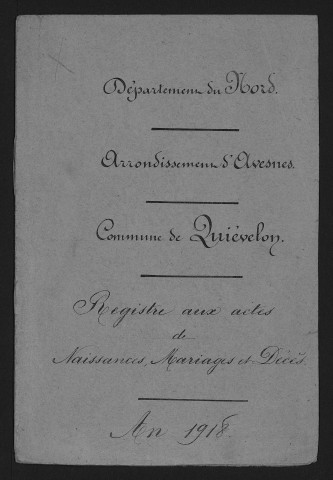 Département du Nord.
Arrondissement d'Avesnes.
Commune de Quiévelon.
Registre aux actes
de
Naissances, Mariages et Décès.
An 1918.